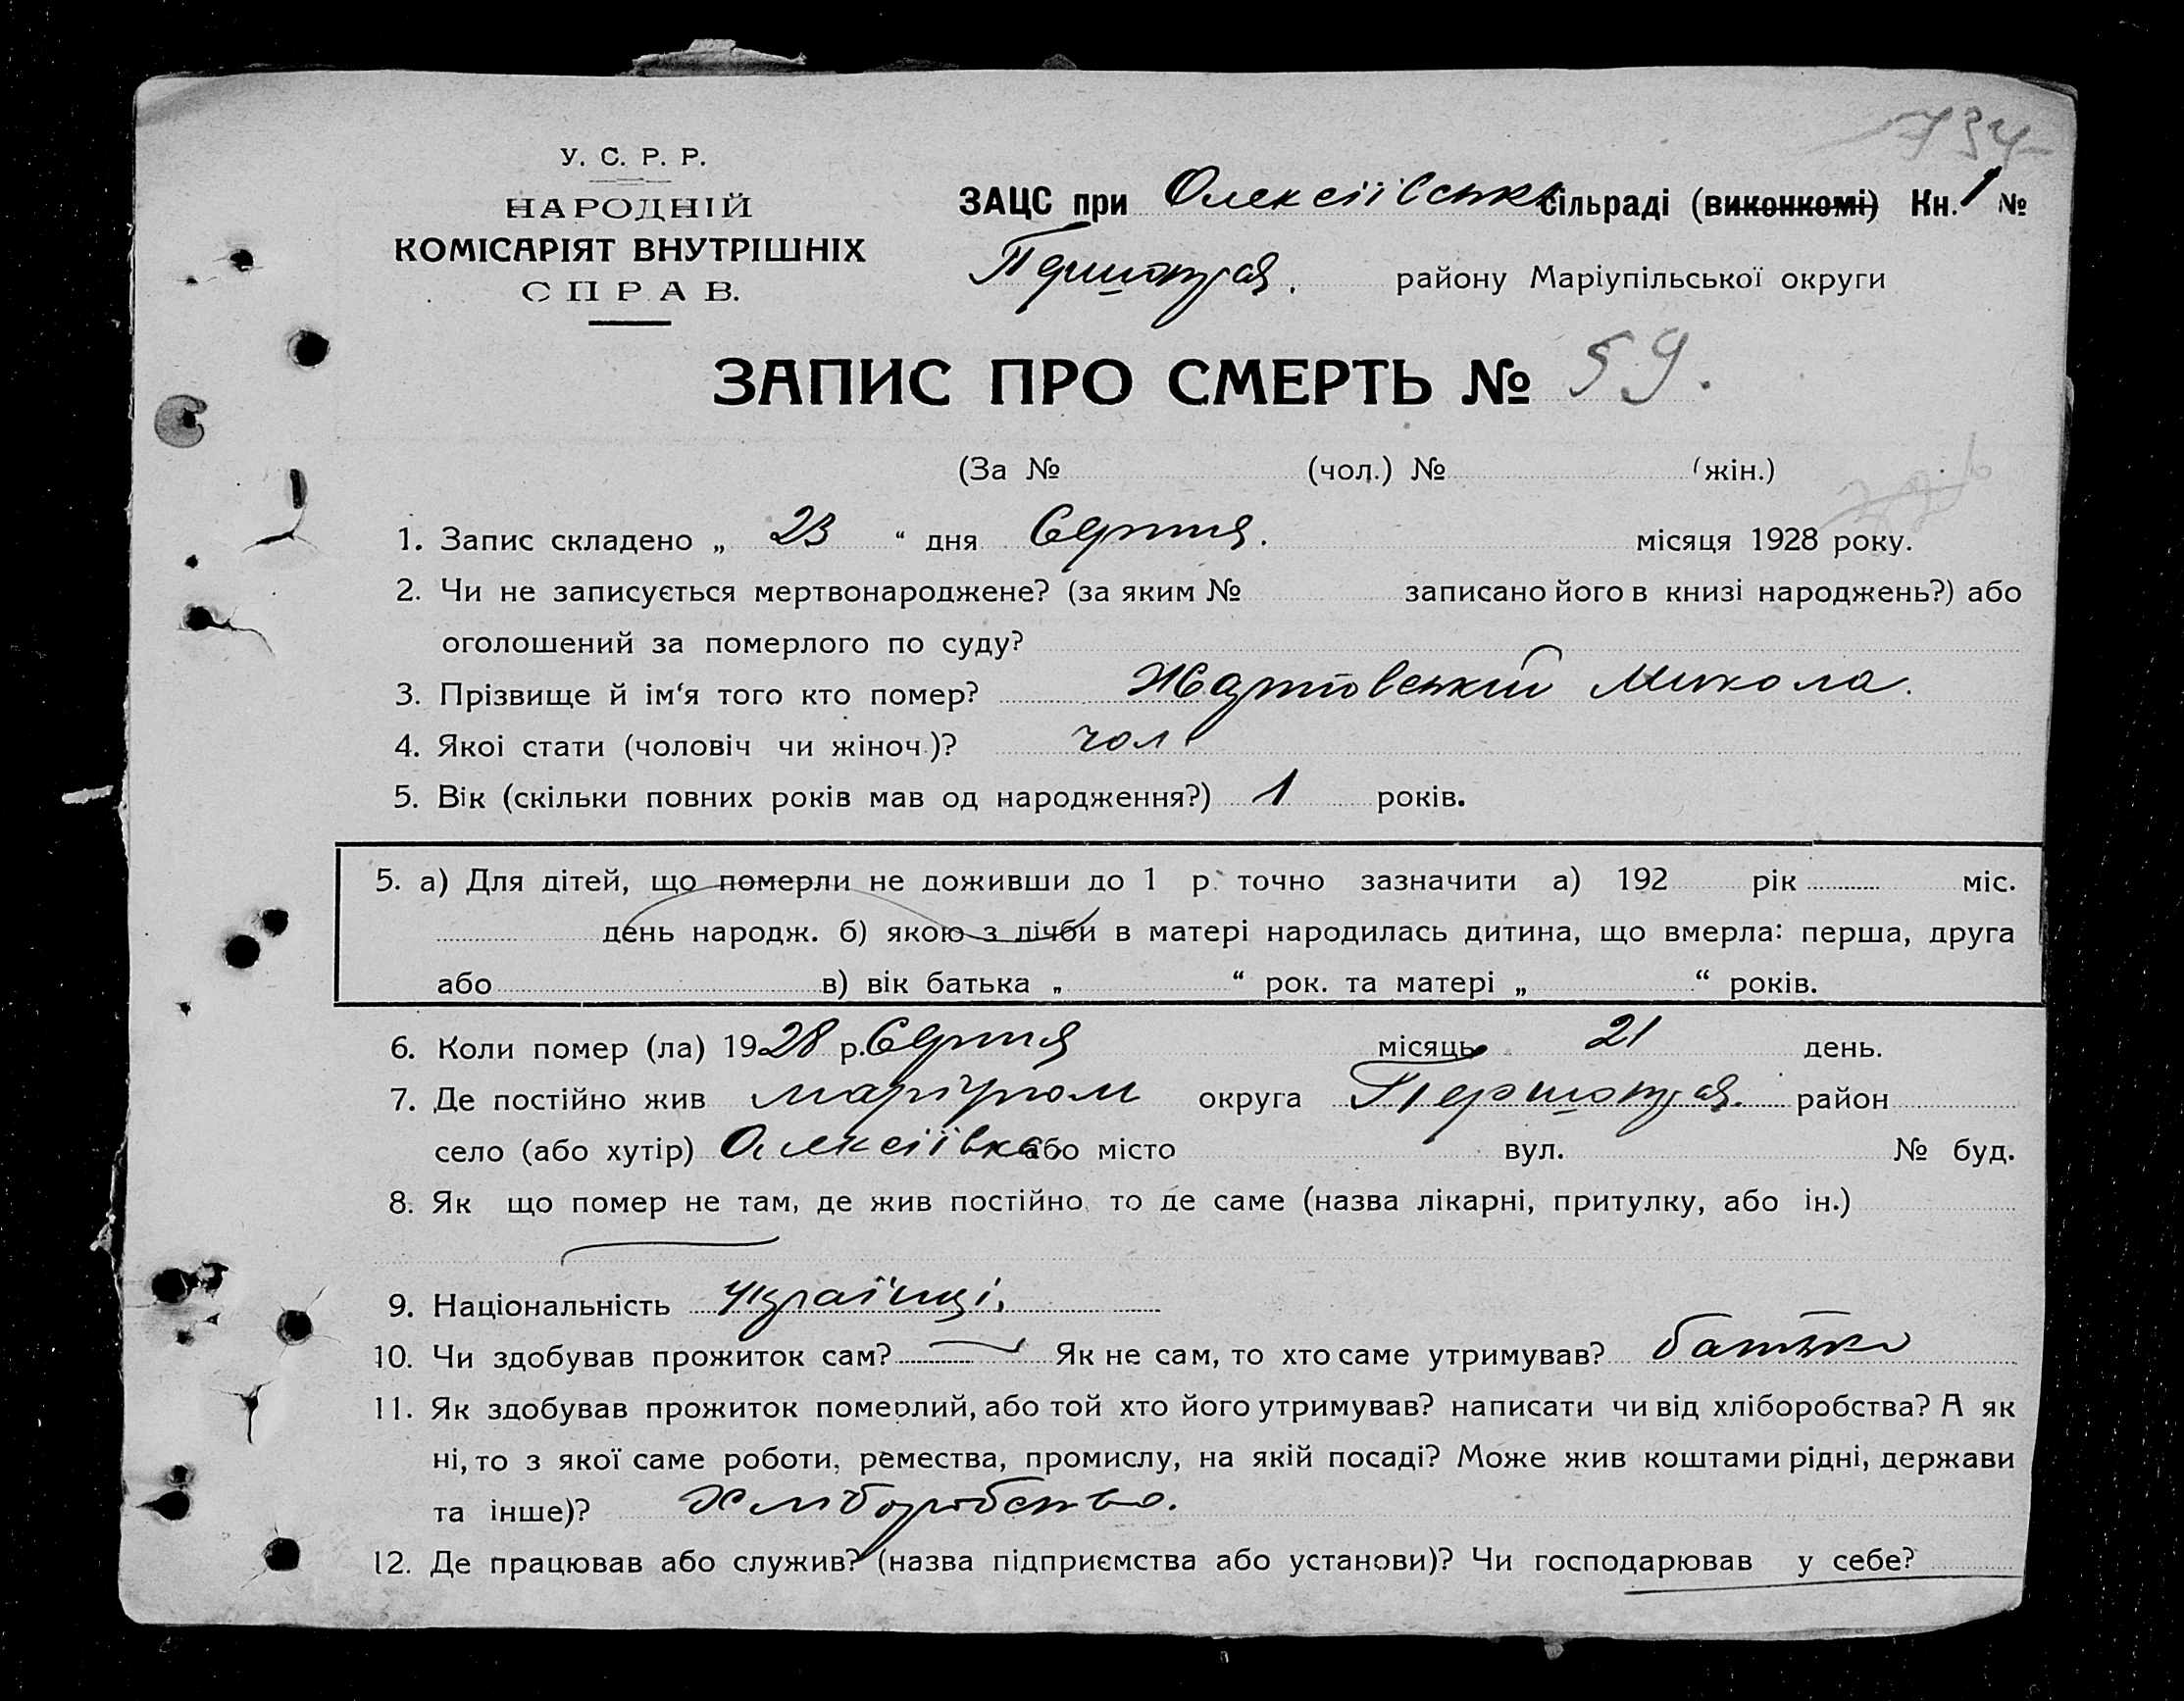 734
У. С. Р. Р.
НАРОДНІЙ
КОМІСАРІЯТ ВНУТРІШНІХ
СПРАВ.
ЗАЦС при Олексіївськ сільраді (виконкомі) Кн. 1 №
району Маріупільської округи
ЗАПИС ПРО СМЕРТЬ № 59.
(За № (чол.) № (жін.)
1. Запис складено „ 23 “ дня Серпня. місяця 1928 року.
2. Чи не записується мертвонароджене? (за яким № записано його в книзі народжень?) або
оголошений за померлого по суду?
3. Прізвище й ім‘я того кто помер? Жартовський Микола.
4. Якої стати (чоловіч чи жіноч.)? чол
5. Вік (скільки повних років мав од народження?) 1 років.
5. а) Для дітей, що померли не доживши до 1 р. точно зазначити а) 192 рік міс.
день народж. б) якою з лічби в матері народилась дитина, що вмерла: перша, друга
або в) вік батька „ “ рок. та матері „ “ років.
6. Коли помер (ла) 1928 р. Серпня місяць 21 день.
7. Де постійно жив округа район
село (або хутір) Олексіївка або місто вул. № буд.
8. Як що помер не там, де жив постійно, то де саме (назва лікарні, притулку, або ін.)
9. Національність Українці.
10. Чи здобував прожиток сам? Як не сам, то хто саме утримував? батько
11. Як здобував прожиток померлий, або той хто його утримував? написати чи від хліборобства? А як
ні, то з якої саме роботи, ремества, промислу, на якій посаді? Може жив коштами рідні, держави
та інше)? Хліборобство.
12. Де працював або служив? (назва підприємства або установи)? Чи господарював у себе?